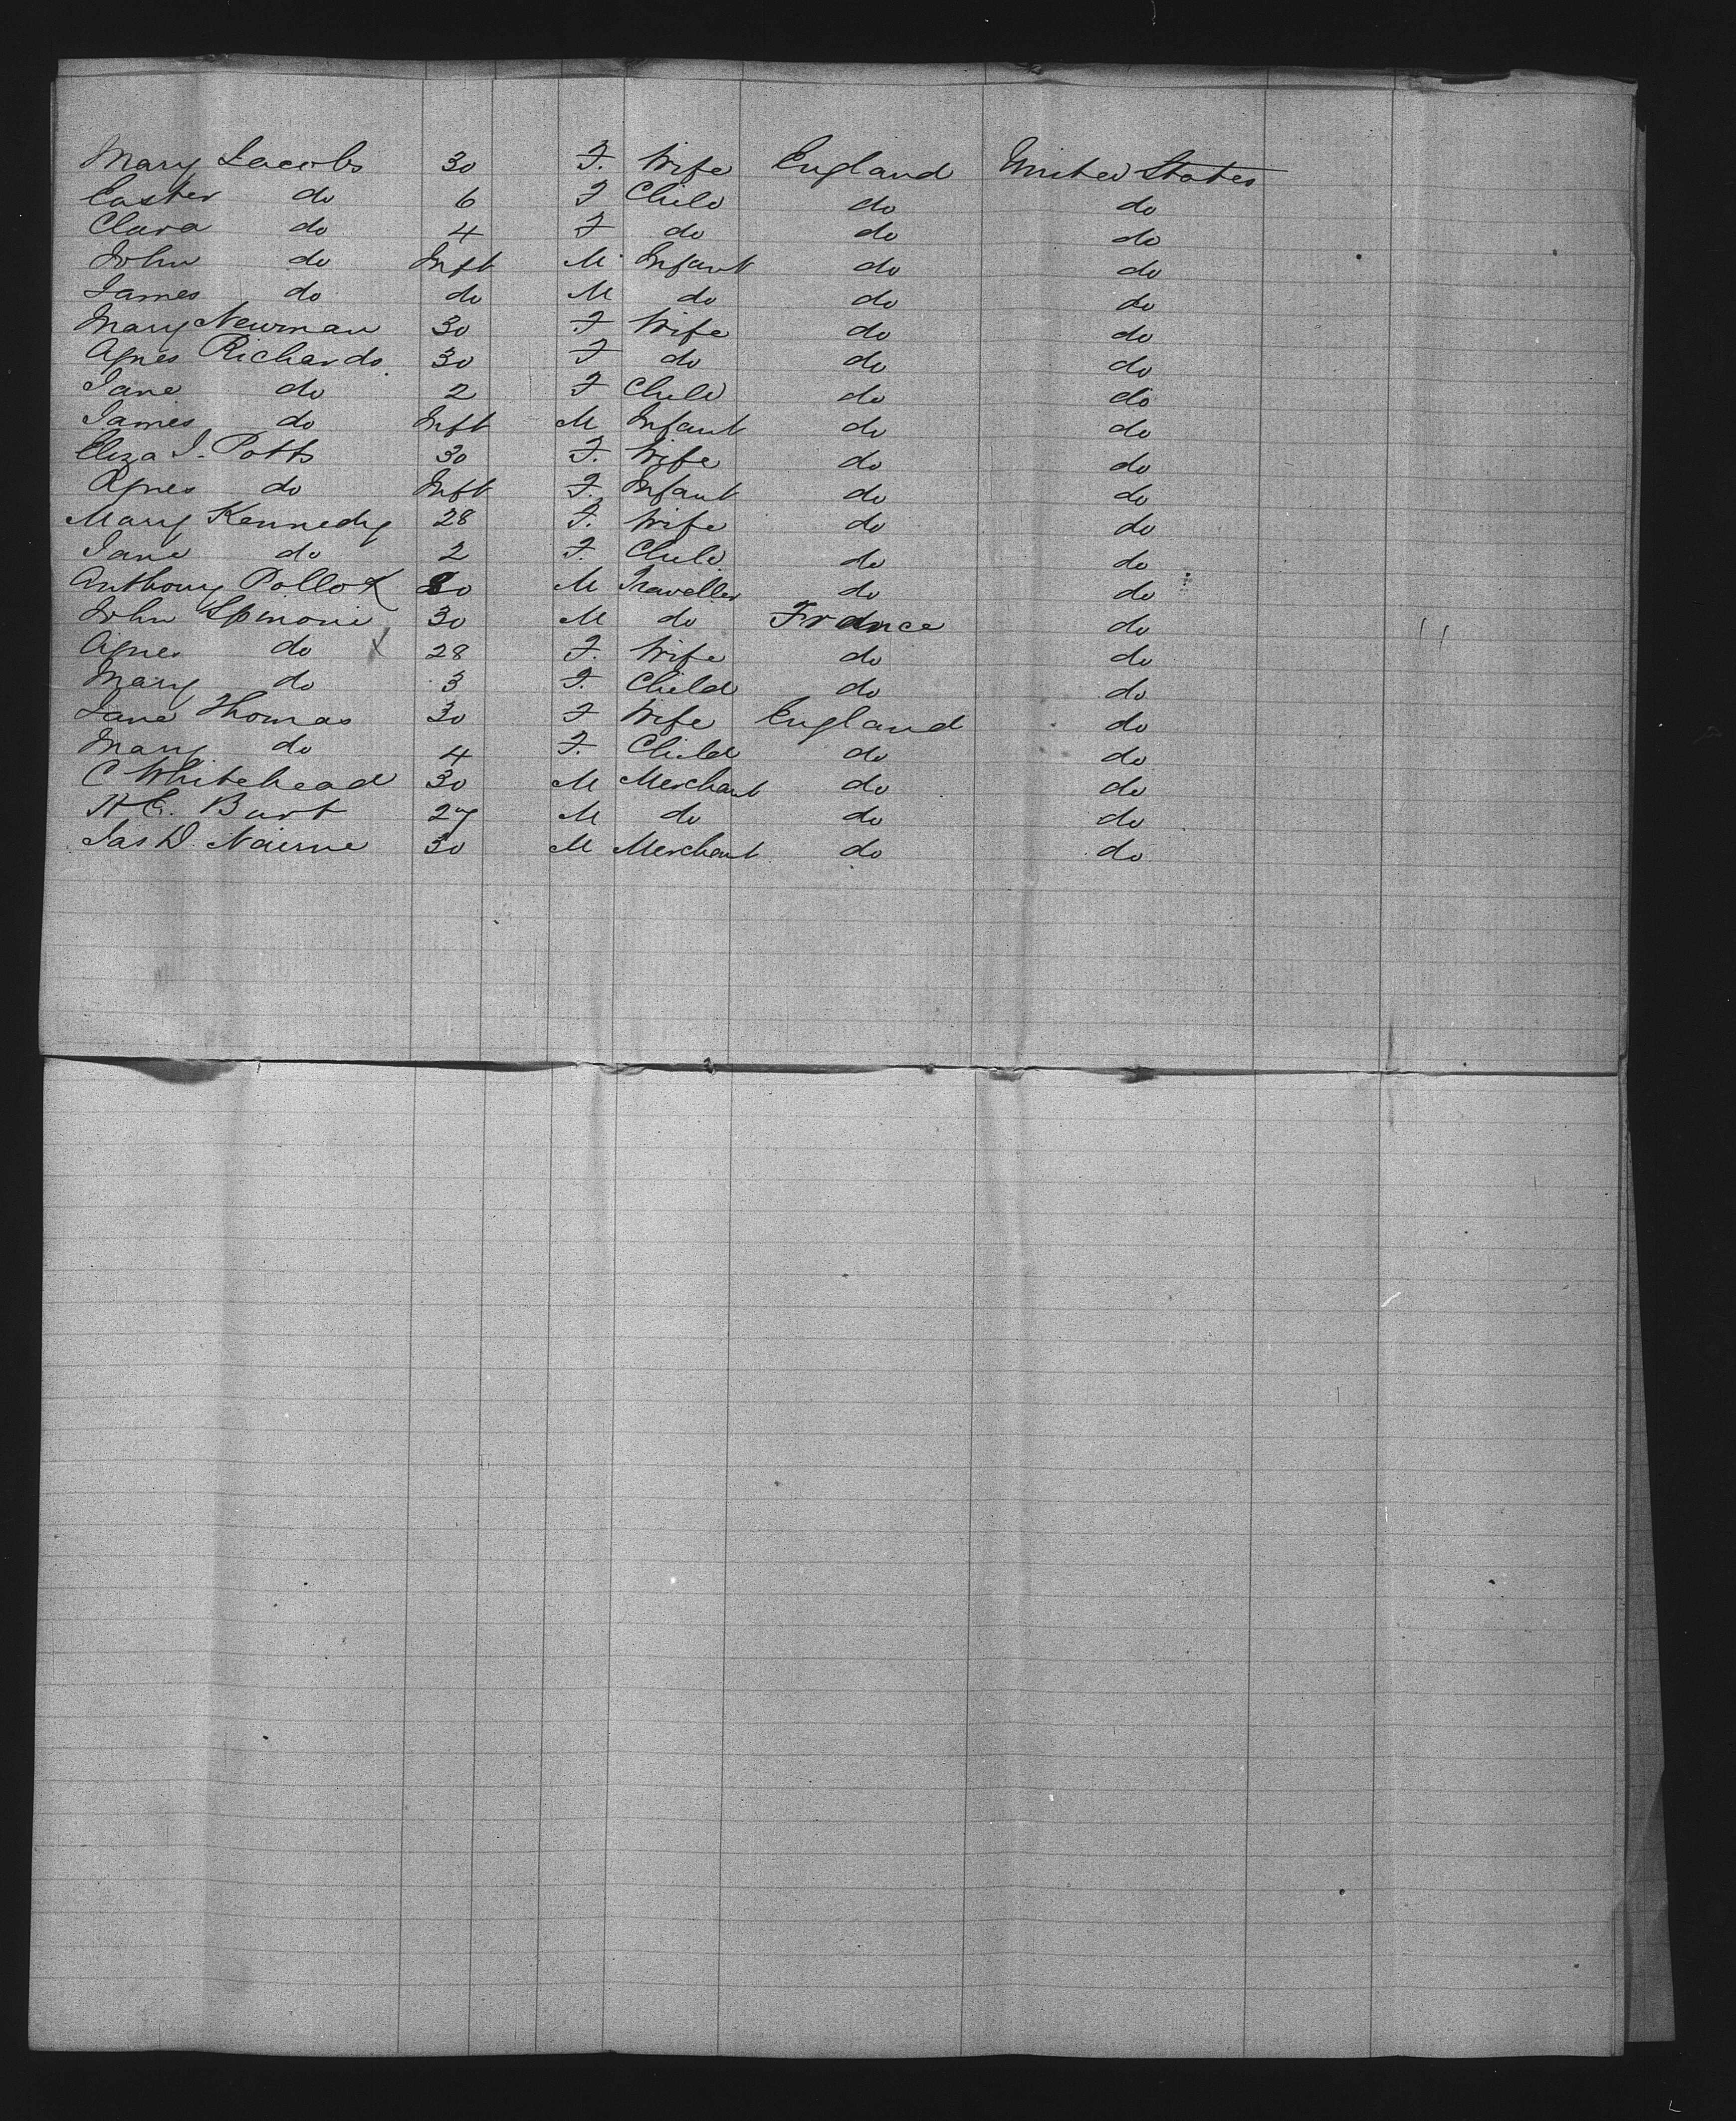 Mary Jacobs 30 F. Wife England United States
Easter do 6 F Child do do
Clara do 4 F do do do
John do Inft M Infant do do
James do do M do do do
Mary Newman 30 F Wife do do
Agnes Richards. 30 F do do do
Jane do 2 F Child do do
James do Inft M Infant do do
Eliza J. Potts 30 F. Wife do do
Agnes do Inft F. Infant do do
Mary Kennedy 28 F. Wife do do
Jane do 2 F. Child do do
Anthony Pollok M Traveller do do
John 30 M do France do
Agnes do X 28 F. Wife do do
Mary do 3 F. Child do do
Jane Thomas 30 F Wife England do
Mary do 4 F. Child do do
C Whitehead 30 M Merchant do do
H E. Burt 27 M do do do
Jas D. Nairne 30 M Merchant do do